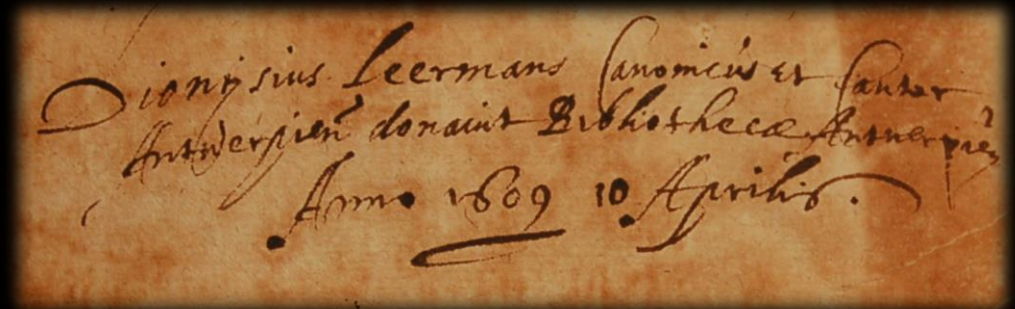 Dionysius Leermans Canonicus et Cantor
Antverpien̄ donavit Bibliothecæ Antverpien̄
Anno 1609 10 Aprilis.